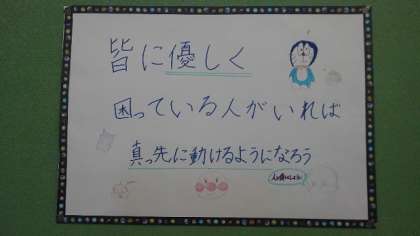 皆に優しく
困っている人がいれば
真っ先に動けるようになろう